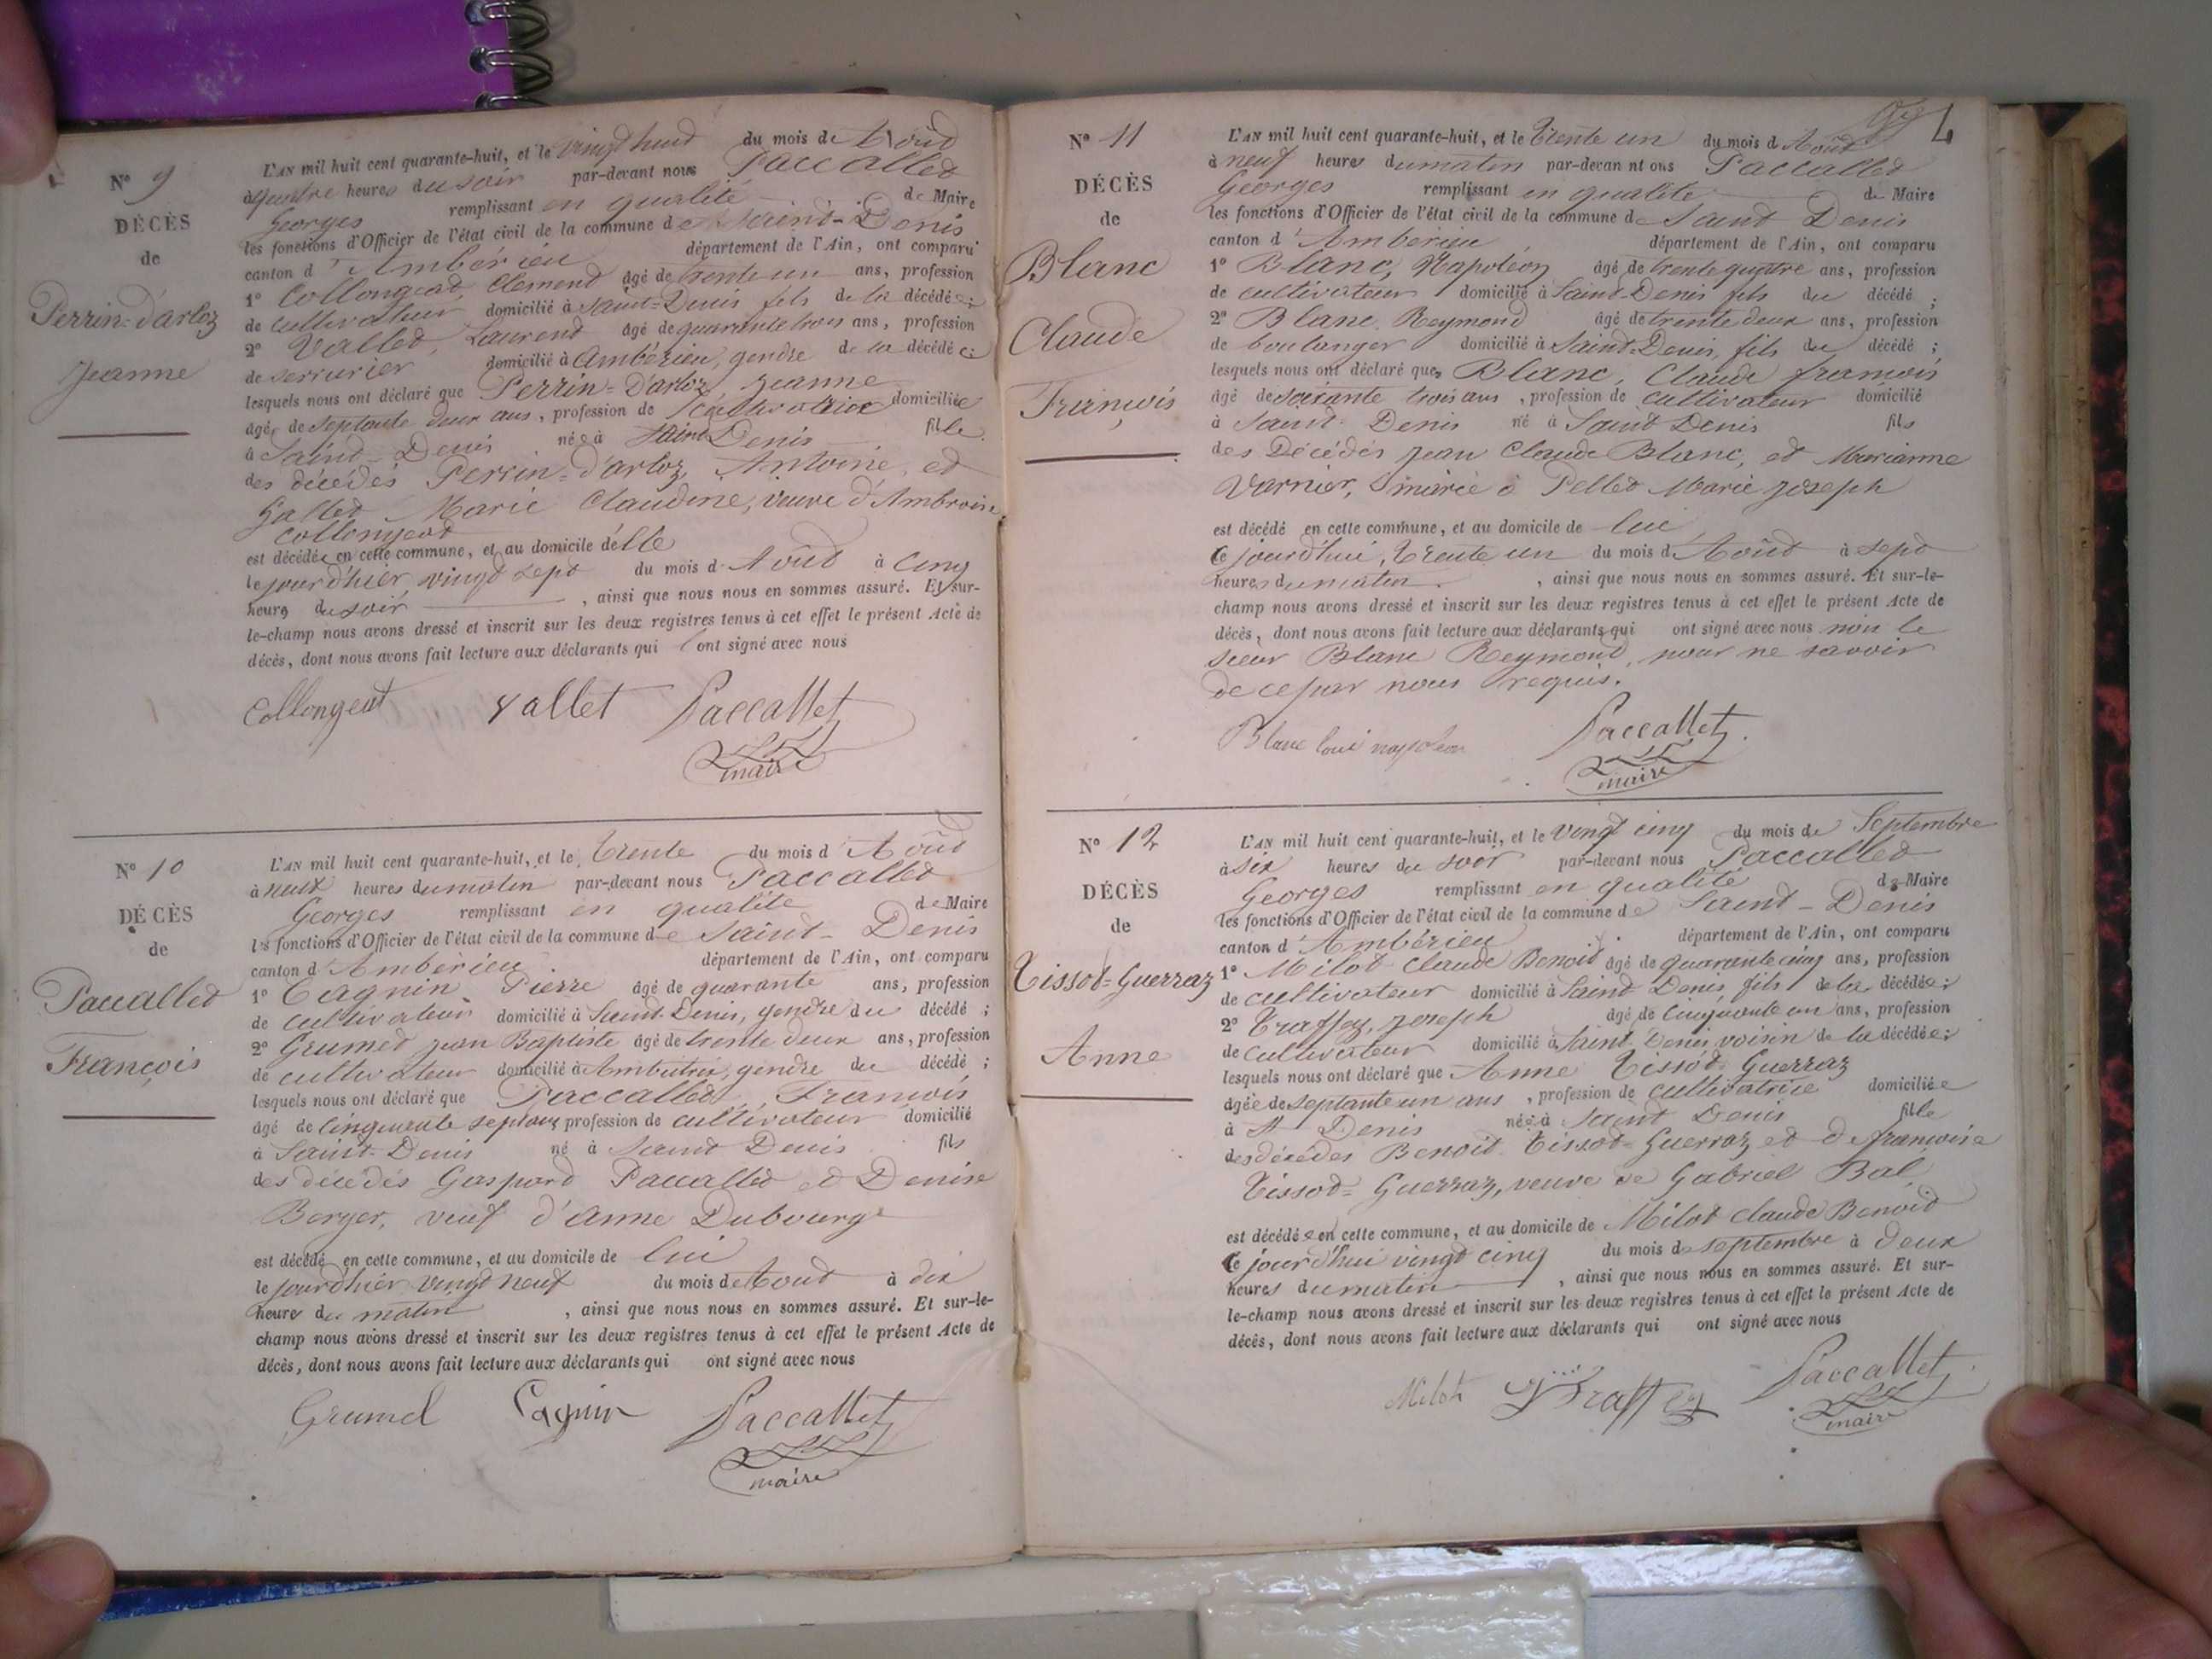 N° 9
DÉCÈS
de
Perrin=d'arloz
Jeanne
L'AN mil huit cent quarante-huit, et le vingt huit du mois de Août
à quatre heures du soir par-devant nous Paccalled
Georges remplissant en qualité de Maire
les fonctions d'Officier de l'état civil de la commune de Saint-Denis
canton d'Ambérieu département de l'Ain, ont comparu
1° Collongeat, Clement âgé de trente un ans, profession
de cultivateur domicilié à Saint=Denis fils de la décédée;
2° Valled, Laurend âgé de quarante trois ans, profession
de serrurier domicilié à Ambérieu, gendre de la décédée;
lesquels nous ont déclaré que Perrin=D'arloz Jeanne
âgée de septante deux ans, profession de cultivatrice domiciliée
à Saint-Denis née à Saint Denis fille
des décédés Perrin=d'arloz, Antoine, et
Galled Marie Claudine, veuve d'Ambroise
Collongeat
est décédée en cette commune, et au domicile d'elle
le jour d'hier, vingt sept du mois d'Août à cinq
heures du soir , ainsi que nous nous en sommes assuré. Et sur-
le-champ nous avons dressé et inscrit sur les deux registres tenus à cet effet le présent Acte de
décès, dont nous avons fait lecture aux déclarants qui ont signé avec nous
Collongeat Vallet Paccallet
maire
N° 10
DÉCÈS
de
Paccalled
François
L'AN mil huit cent quarante-huit, et le trente du mois d'Août
à neuf heures du matin par-devant nous Paccalled
Georges remplissant en qualité de Maire
les fonctions d'Officier de l'état civil de la commune de Saint-Denis
canton d'Ambérieu département de l'Ain, ont comparu
1° Cagnin Pierre âgé de quarante ans, profession
de cultivateur domicilié à Saint-Denis, gendre du décédé;
2° Grumed jean Baptiste âgé de trente deux ans, profession
de cultivateur domicilié à Ambutrix, gendre du décédé;
lesquels nous ont déclaré que Paccalled, François
âgé de cinquante sept ans profession de cultivateur domicilié
à Saint-Denis né à Saint Denis fils
des décédés Gaspard Paccalled et Denise
Berger, veuf d'Anne Dubourg
est décédé en cette commune, et au domicile de lui
le jour d'hier vingt neuf du mois de Aout à dix
heures du matin , ainsi que nous nous en sommes assuré. Et sur-le-
champ nous avons dressé et inscrit sur les deux registres tenus à cet effet le présent Acte de
décès, dont nous avons fait lecture aux déclarants qui ont signé avec nous
Grumel Cagnin Paccallet
maire
N° 11
DÉCÈS
de
Blanc
Claude
François
L'AN mil huit cent quarante-huit, et le trente un du mois d'Août
à neuf heures du matin par-devan nt ons Paccalled
Georges remplissant en qualité de Maire
les fonctions d'Officier de l'état civil de la commune de Saint Denis
canton d'Ambérieu département de l'Ain, ont comparu
1° Blanc, Napoléon âgé de trente quatre ans, profession
de cultivateur domicilié à Saint-Denis fils du décédé;
2° Blanc Reymond âgé de trente deux ans, profession
de boulanger domicilié à Saint-Denis, fils du décédé;
lesquels nous ont déclaré que Blanc, Claude françois
âgé de soixante trois ans, profession de cultivateur domicilié
à Saint-Denis né à Saint Denis fils
des Décédés jean Claude Blanc, et Marianne
Varnier, marié à Pelled Marie joseph
est décédé en cette commune, et au domicile de lui
Ce jourd'hui, trente un du mois d'Août à sept
heures du matin , ainsi que nous nous en sommes assuré. Et sur-le-
champ nous avons dressé et inscrit sur les deux registres tenus à cet effet le présent Acte de
décès, dont nous avons fait lecture aux déclarants qui ont signé avec nous non le
sieur Blanc Reymond, pour ne savoir
de ce par nous requis.
Blanc loui napoleon Paccallet
maire
N° 12
DÉCÈS
de
Tissot=Guerraz
Anne
L'AN mil huit cent quarante-huit, et le vingt cinq du mois de Septembre
à six heures du soir par-devant nous Paccalled
Georges remplissant en qualité de Maire
les fonctions d'Officier de l'état civil de la commune de Saint-Denis
canton d'Ambérieu département de l'Ain, ont comparu
1° Milot Claude Benoit âgé de quarante cinq ans, profession
de cultivateur domicilié à Saint Denis, fils de la décédée;
2° Traffey, joseph âgé de cinquante un ans, profession
de cultivateur domicilié à Saint-Denis, voisin de la décédée;
lesquels nous ont déclaré que Anne Tissot Guerraz
âgée de septante un ans, profession de cultivatrice domiciliée
à St Denis née à Saint Denis fille
des décédés Benoit Tissot=Guerraz et de françoise
Tissot=Guerraz, veuve de Gabriel Bal
est décédée en cette commune, et au domicile de Milot Claude Benoit
Ce jourd'hui vingt cinq du mois de septembre à deux
heures du matin , ainsi que nous nous en sommes assuré. Et sur-
le-champ nous avons dressé et inscrit sur les deux registres tenus à cet effet le présent Acte de
décès, dont nous avons fait lecture aux déclarants qui ont signé avec nous
Milot Traffey Paccallet
maire